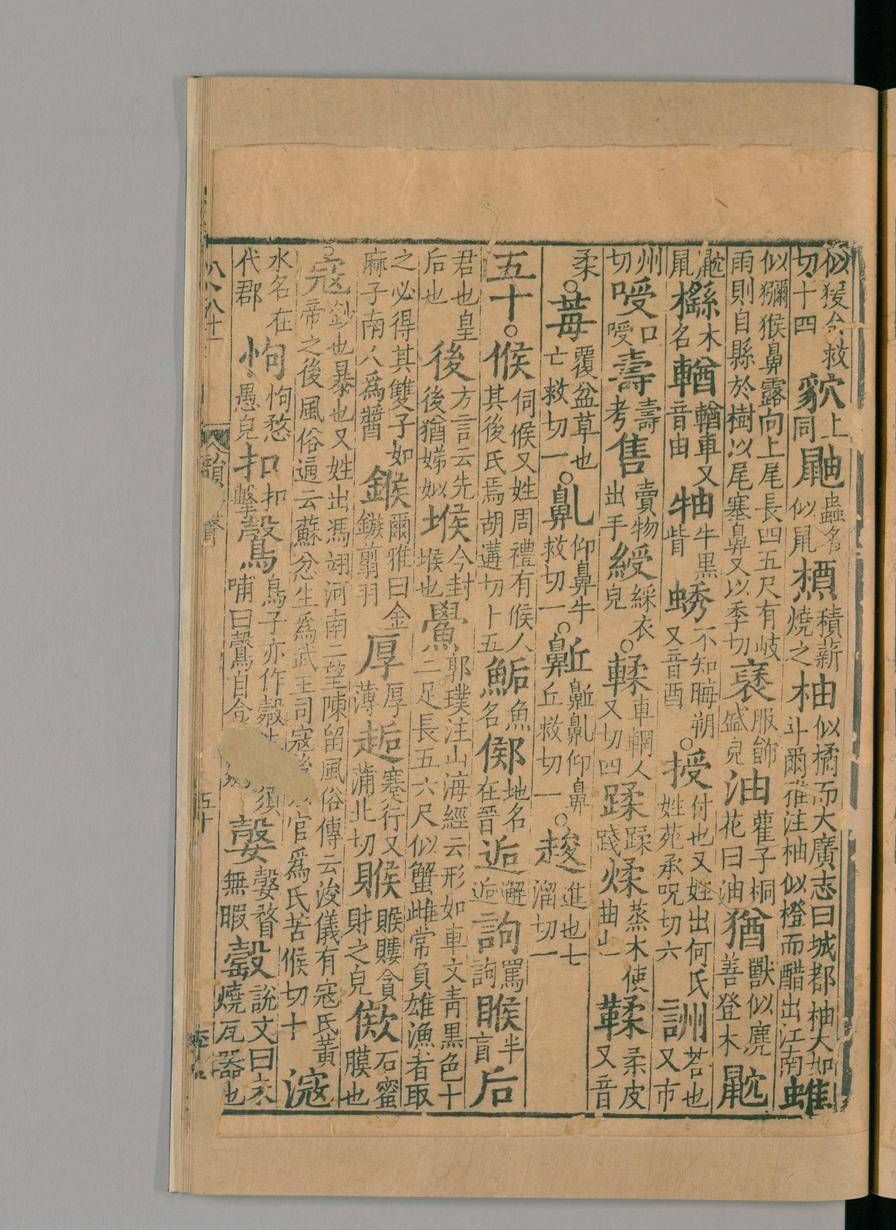 似猨余救切十四貁上同鼬蟲名似鼠槱積薪燒之柚似橘而大廣志曰城都柚大如斗爾雅注柚似橙而醋出江南蜼
似獼猴鼻露向上尾長四五尺有岐雨則自縣於樹以尾塞鼻又以季切褎服飾盛皃油雚子桐花曰油猶獸似麂善登木
鼠櫾木名輶輶車又音由牰牛黑眥蜏不知晦朔又音酉○授付也又姓出何氏姓苑承呪切六詶荅也又市
州切口壽壽考售賣物出手綬綵衣皃○輮車輞人又切四蹂蹂踐煣蒸木使曲鞣柔皮又音
柔○莓覆盆草也亡救切一○仰鼻牛救切一○仰鼻丘救切一○進也七溜切一
五十○候伺候又姓周禮有候人其後氏焉胡遘切十五鮜魚名郈地名在晉逅邂逅詬罵詬睺半盲后
君也皇后也後方言云先後猶娣姒堠今封堠也鱟郭璞注山海經云形如車文青黑色十二足長五六尺似蟹雌常負雄漁者取
之必得其雙子如麻子南人爲醬鍭爾雅曰金鏃翦羽厚厚薄蹇行又蒲北切貪財之皃石蜜膜也
○寇鈔也暴也又姓出馮翊河南二望陳留風俗傳云浚儀有寇氏黃帝之後風俗通云蘇忿生爲武王司寇後官爲氏苦候切十滱
水名在代郡怐怐愗愚皃扣扣擊鷇鳥子亦作須哺曰鷇自食瞀無暇說文曰未燒瓦器也
五十